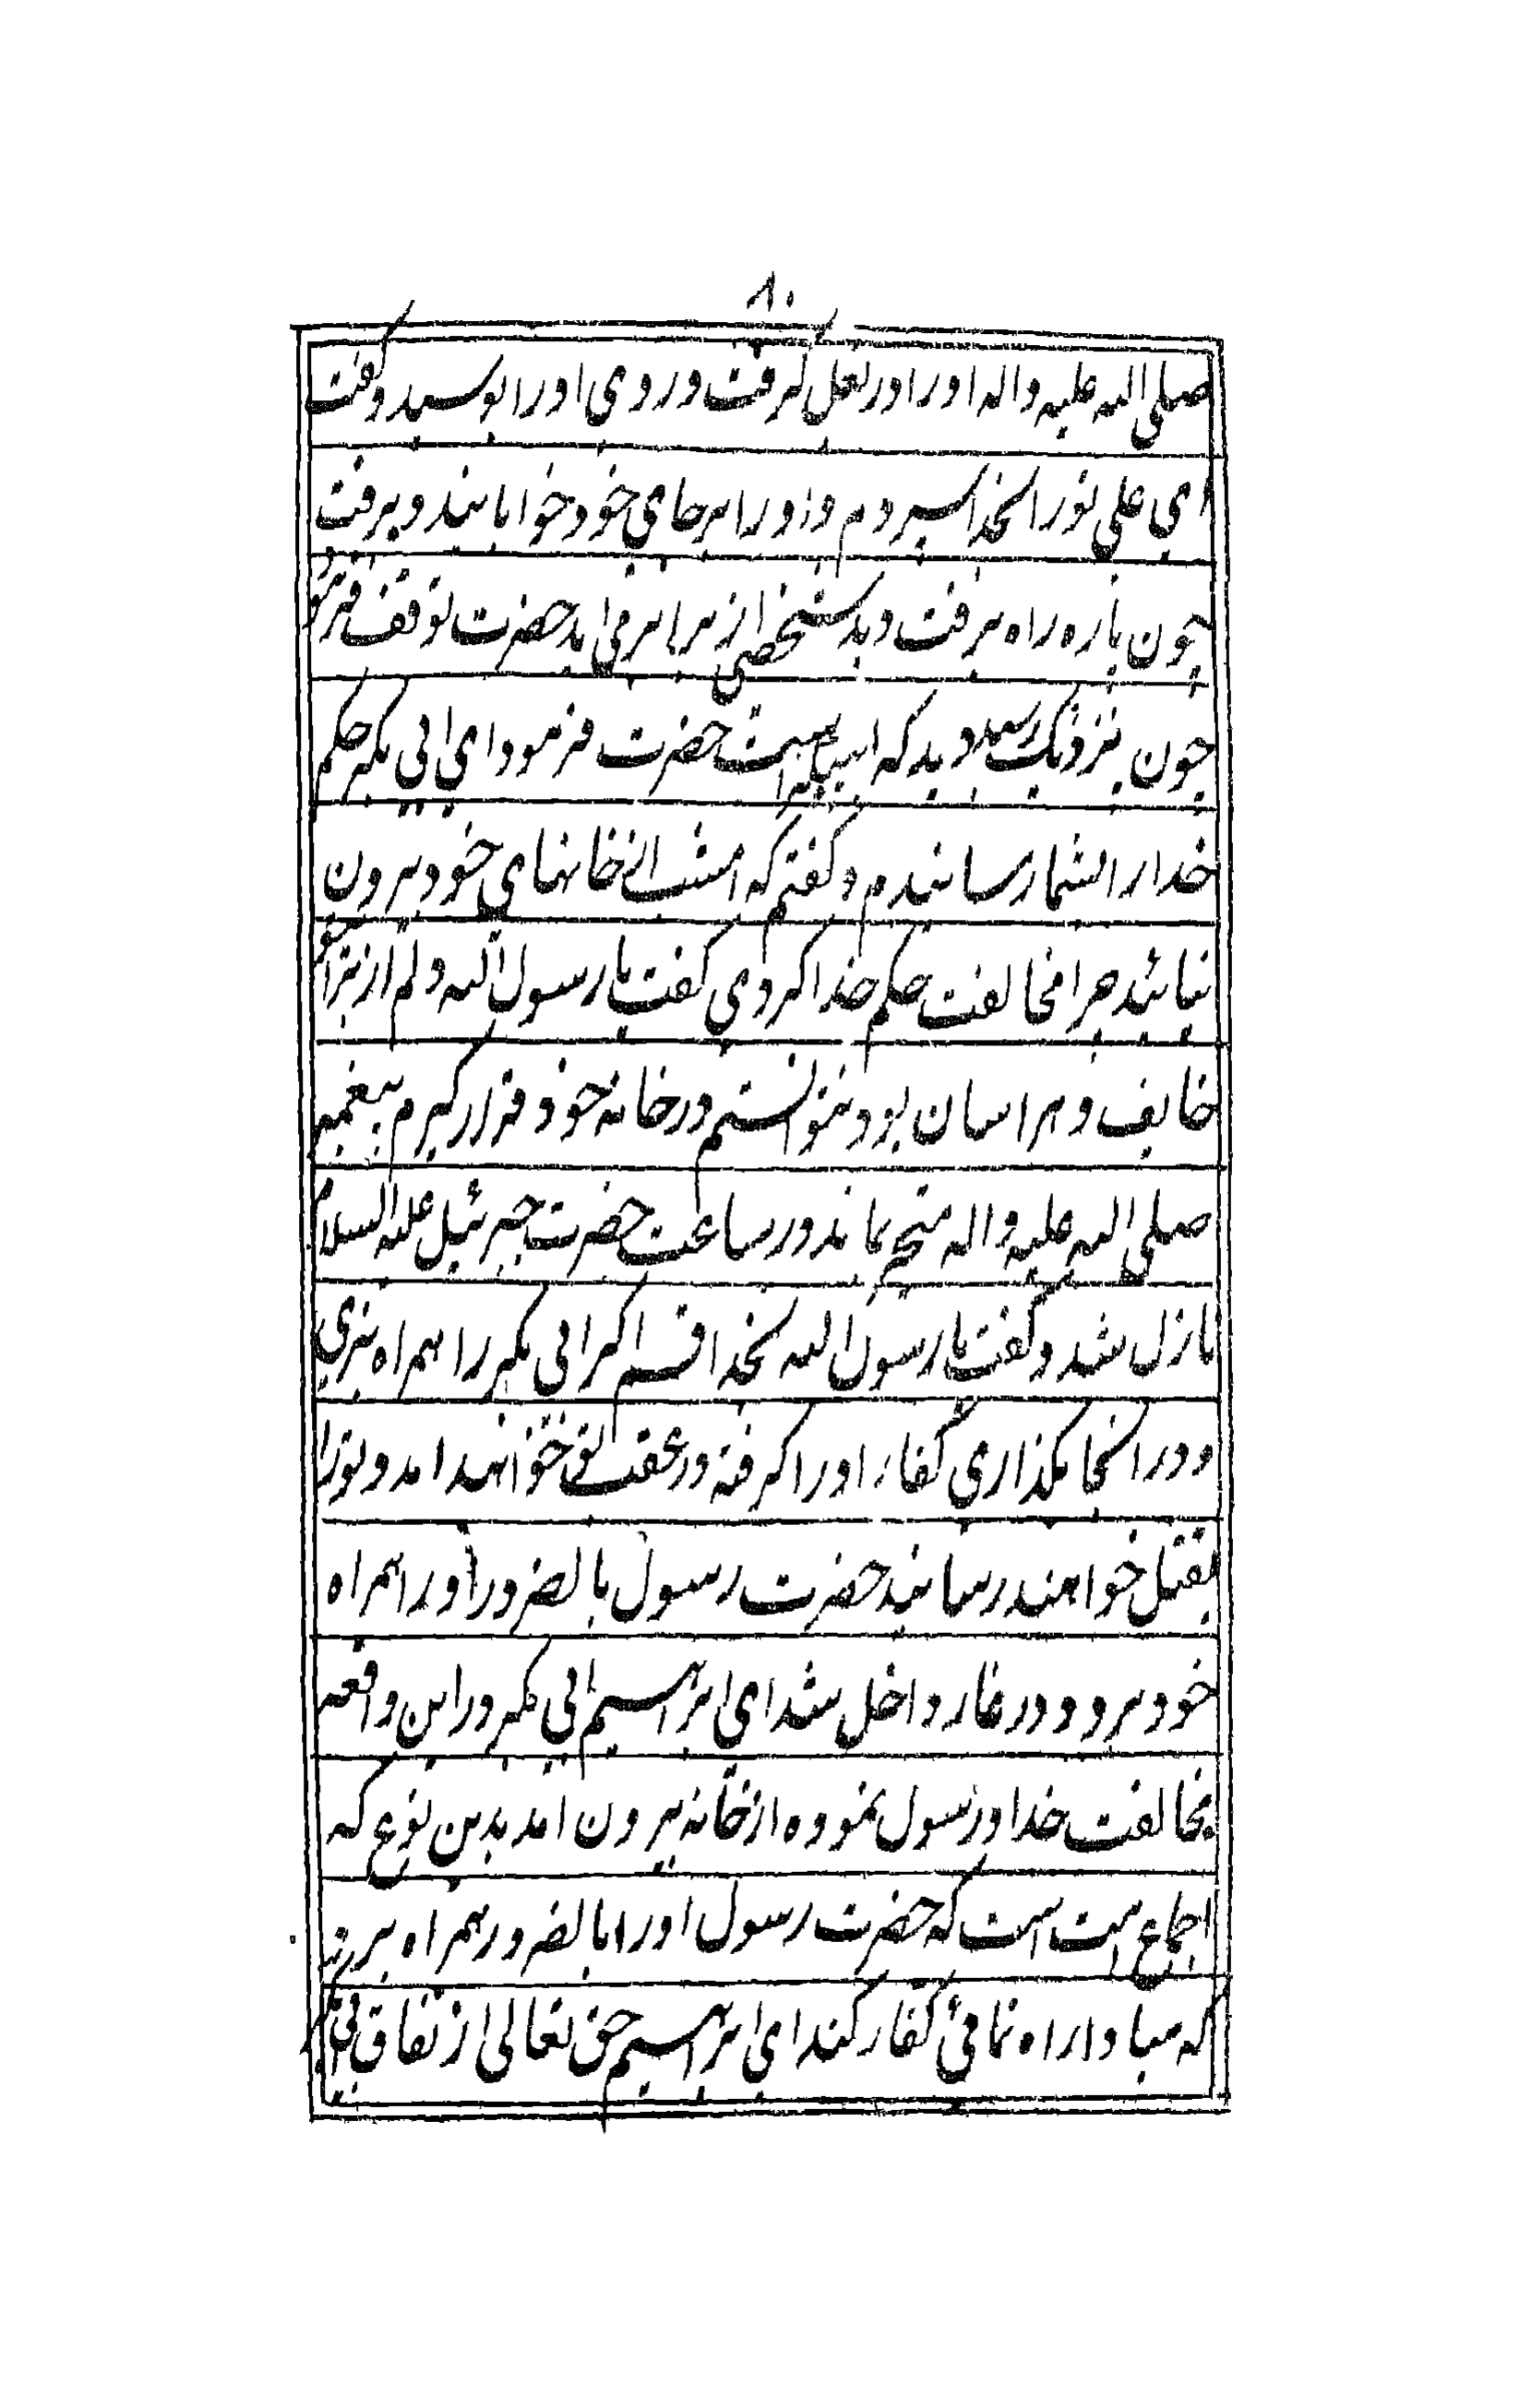 ۸۰
صلی الله علیه واله اورا در بغل گرفت و روی اورا بوسید و گفت
ای علی تورا بخدا سپردم و اورا بر جای خود خوابانید و برفت
چون پاره راه برفت دید شخصی از برابر می اید حضرت توقف فرمود
چون نزدیک رسید دید که حضرت فرمود ای ابی بکر حکم
خدا را بشما رسانیدم و گفتم که امشب از خانهای خود بیرون
نیائید چرا مخالفت حکم خدا کردی گفت یا رسول الله دلم از برای تو
خایف و هراسان بود نتوانستم در خانه خود قرار گیرم پیغمبر
صلی الله علیه واله متحیر بماند در ساعت حضرت جبرئیل علیه السلام
نازل شد و گفت یا رسول الله بخدا قسم اگر ابی بکر را همراه نبری
و در اینجا بگذاری کفار اورا گرفته در عقب تو خواهند امد و تورا
بقتل خواهند رسانید حضرت رسول بالضرور اورا همراه
خود برد و در غار داخل شد ای ابراهیم ابی بکر در این واقعه
مخالفت خدا و رسول نموده از خانه بیرون امد بدین نوع که
اجماع امت است که حضرت رسول اورا بالضرور همراه بردند
که مبادا راه نمائی کفار کند ای ابراهیم حق تعالی از نفاق ابی بکر